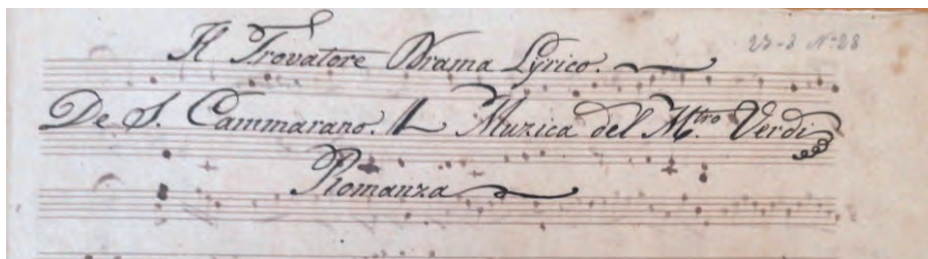 Il Trovatore Drama Lÿrico.
23-8 Nº 28
De S. Cammarano. Muzica del M.tro Verdi
Romanza